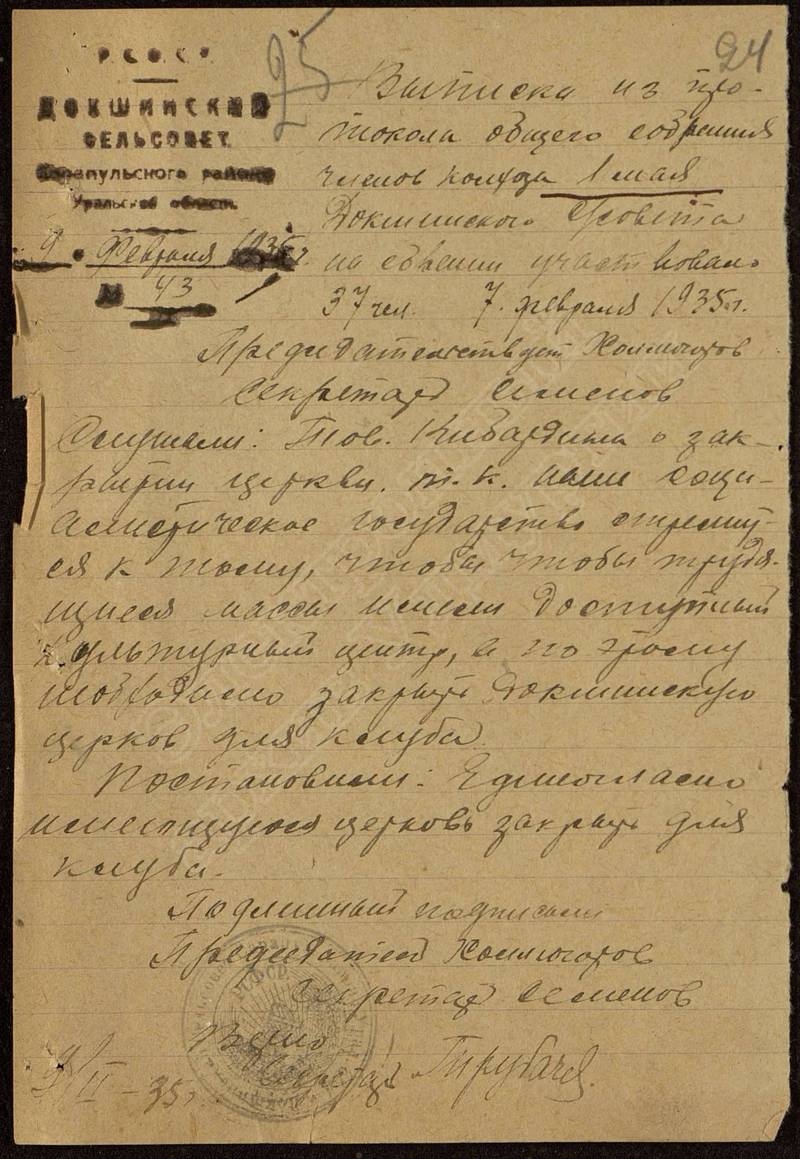 25
24
РСФСР
ДОКШИНСКИЙ
СЕЛЬСОВЕТ
Сарапульского района
Уральской области
9 Февраля 1935 г.
№ 43
Выписка из про-
токола общего собрания
членов колхоза 1 мая
Докшинского С/совета
на собрании участвовал.
37 чел. 7. февраля 1935 г.
Председательствует Колмогоров
секретарь Семенов
Слушали: Тов. Кибардина о зак-
рытии церкви. т.к. наше соци-
алистическое государство стремит-
ся к тому, чтобы чтобы трудя-
щиеся массы имели доступный
культурный центр, а по этому
необходимо закрыть Докшинскую
церков для клуба.
Постановили: Единогласно
имеющуюся церковь закрыть для
клуба.
Подлинный подписали
Председатель Колмогоров
Секретарь Семенов
РСФСР
Верно
Секретарь
9/II-35 г.